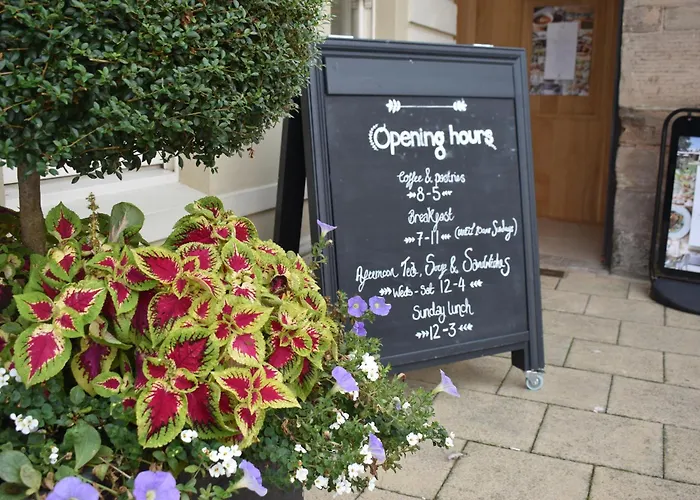 Opening hours
Coffee & pastries
8-5
Breakfast
7-11 (until 12am Sundays)
Afternoon Tea, Soup & Sandwiches
Weds - Sat 12-4
Sunday lunch
12-3